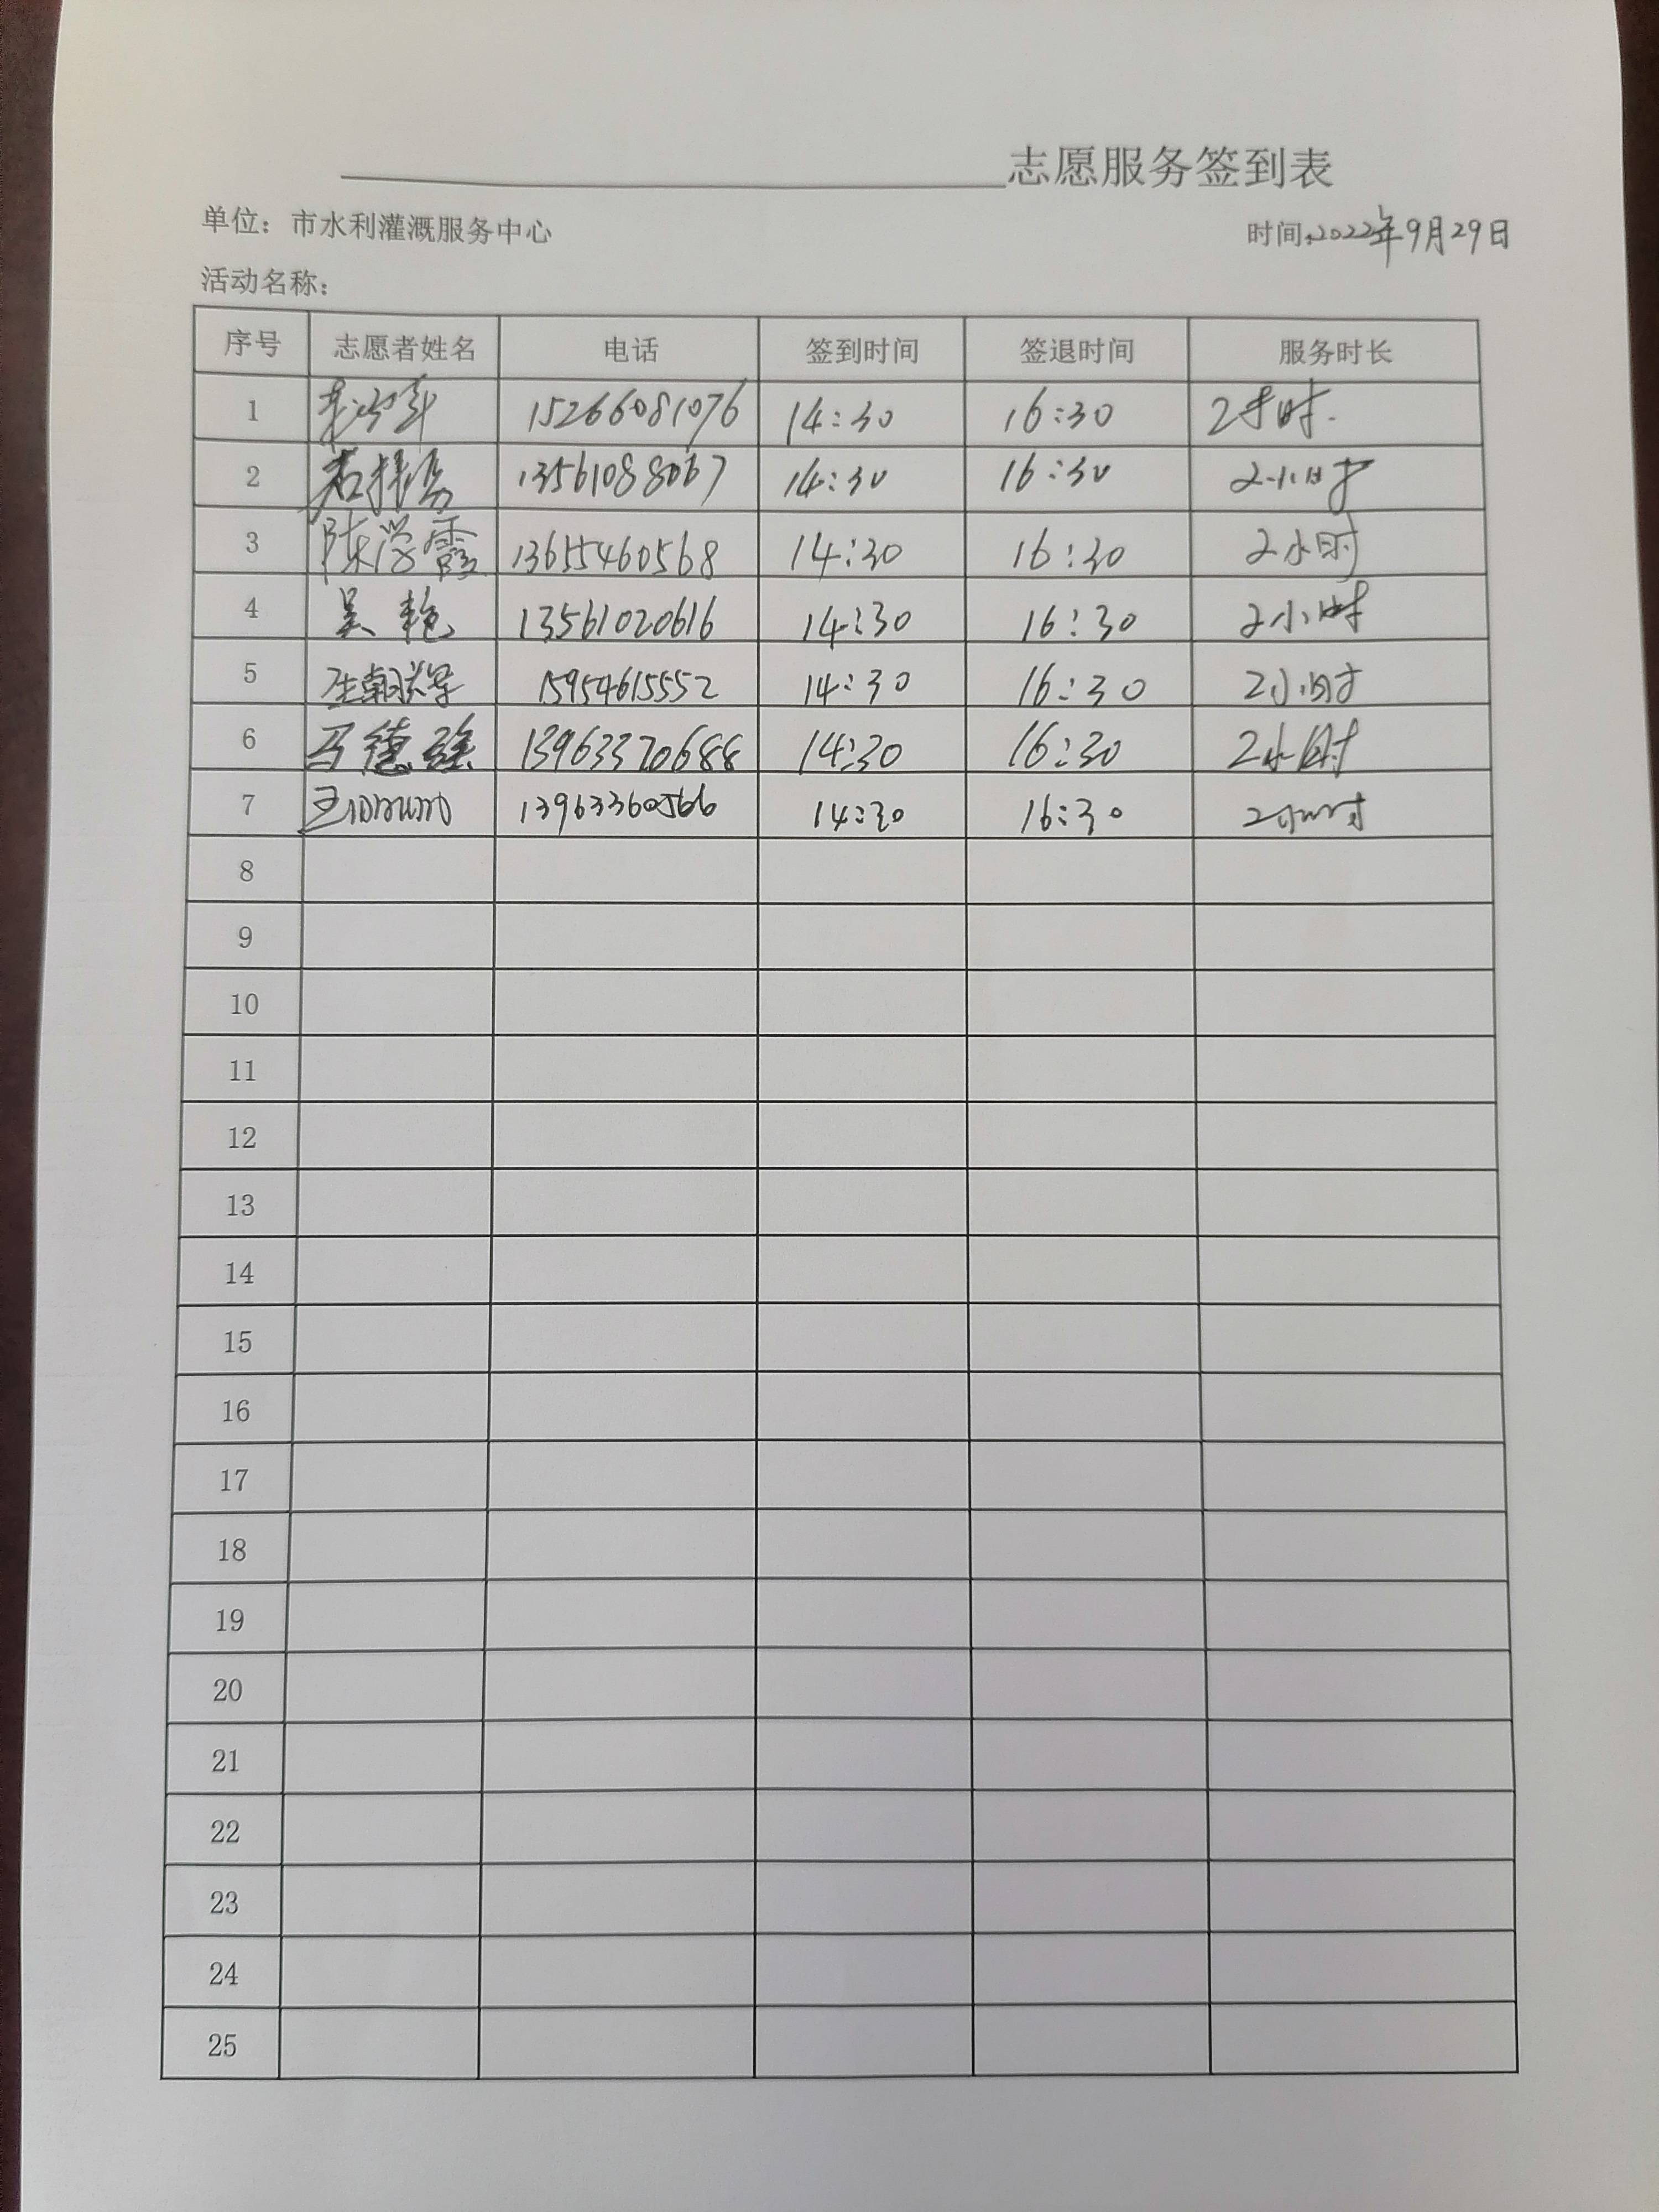 志愿服务签到表
单位：市水利灌溉服务中心 时间:2022年9月29日
活动名称：
序号 志愿者姓名 电话 签到时间 签退时间 服务时长
1 15266081076 14:30 16:30 2小时.
2 13561088067 14:30 16:30 2小时
3 陈学霞 13655460568 14:30 16:30 2小时
4 吴艳 13561020616 14:30 16:30 2小时
5 15954615552 14:30 16:30 2小时
6 马德强 13963370688 14:30 16:30 2小时
7 13963360566 14:30 16:30 2小时
8
9
10
11
12
13
14
15
16
17
18
19
20
21
22
23
24
25